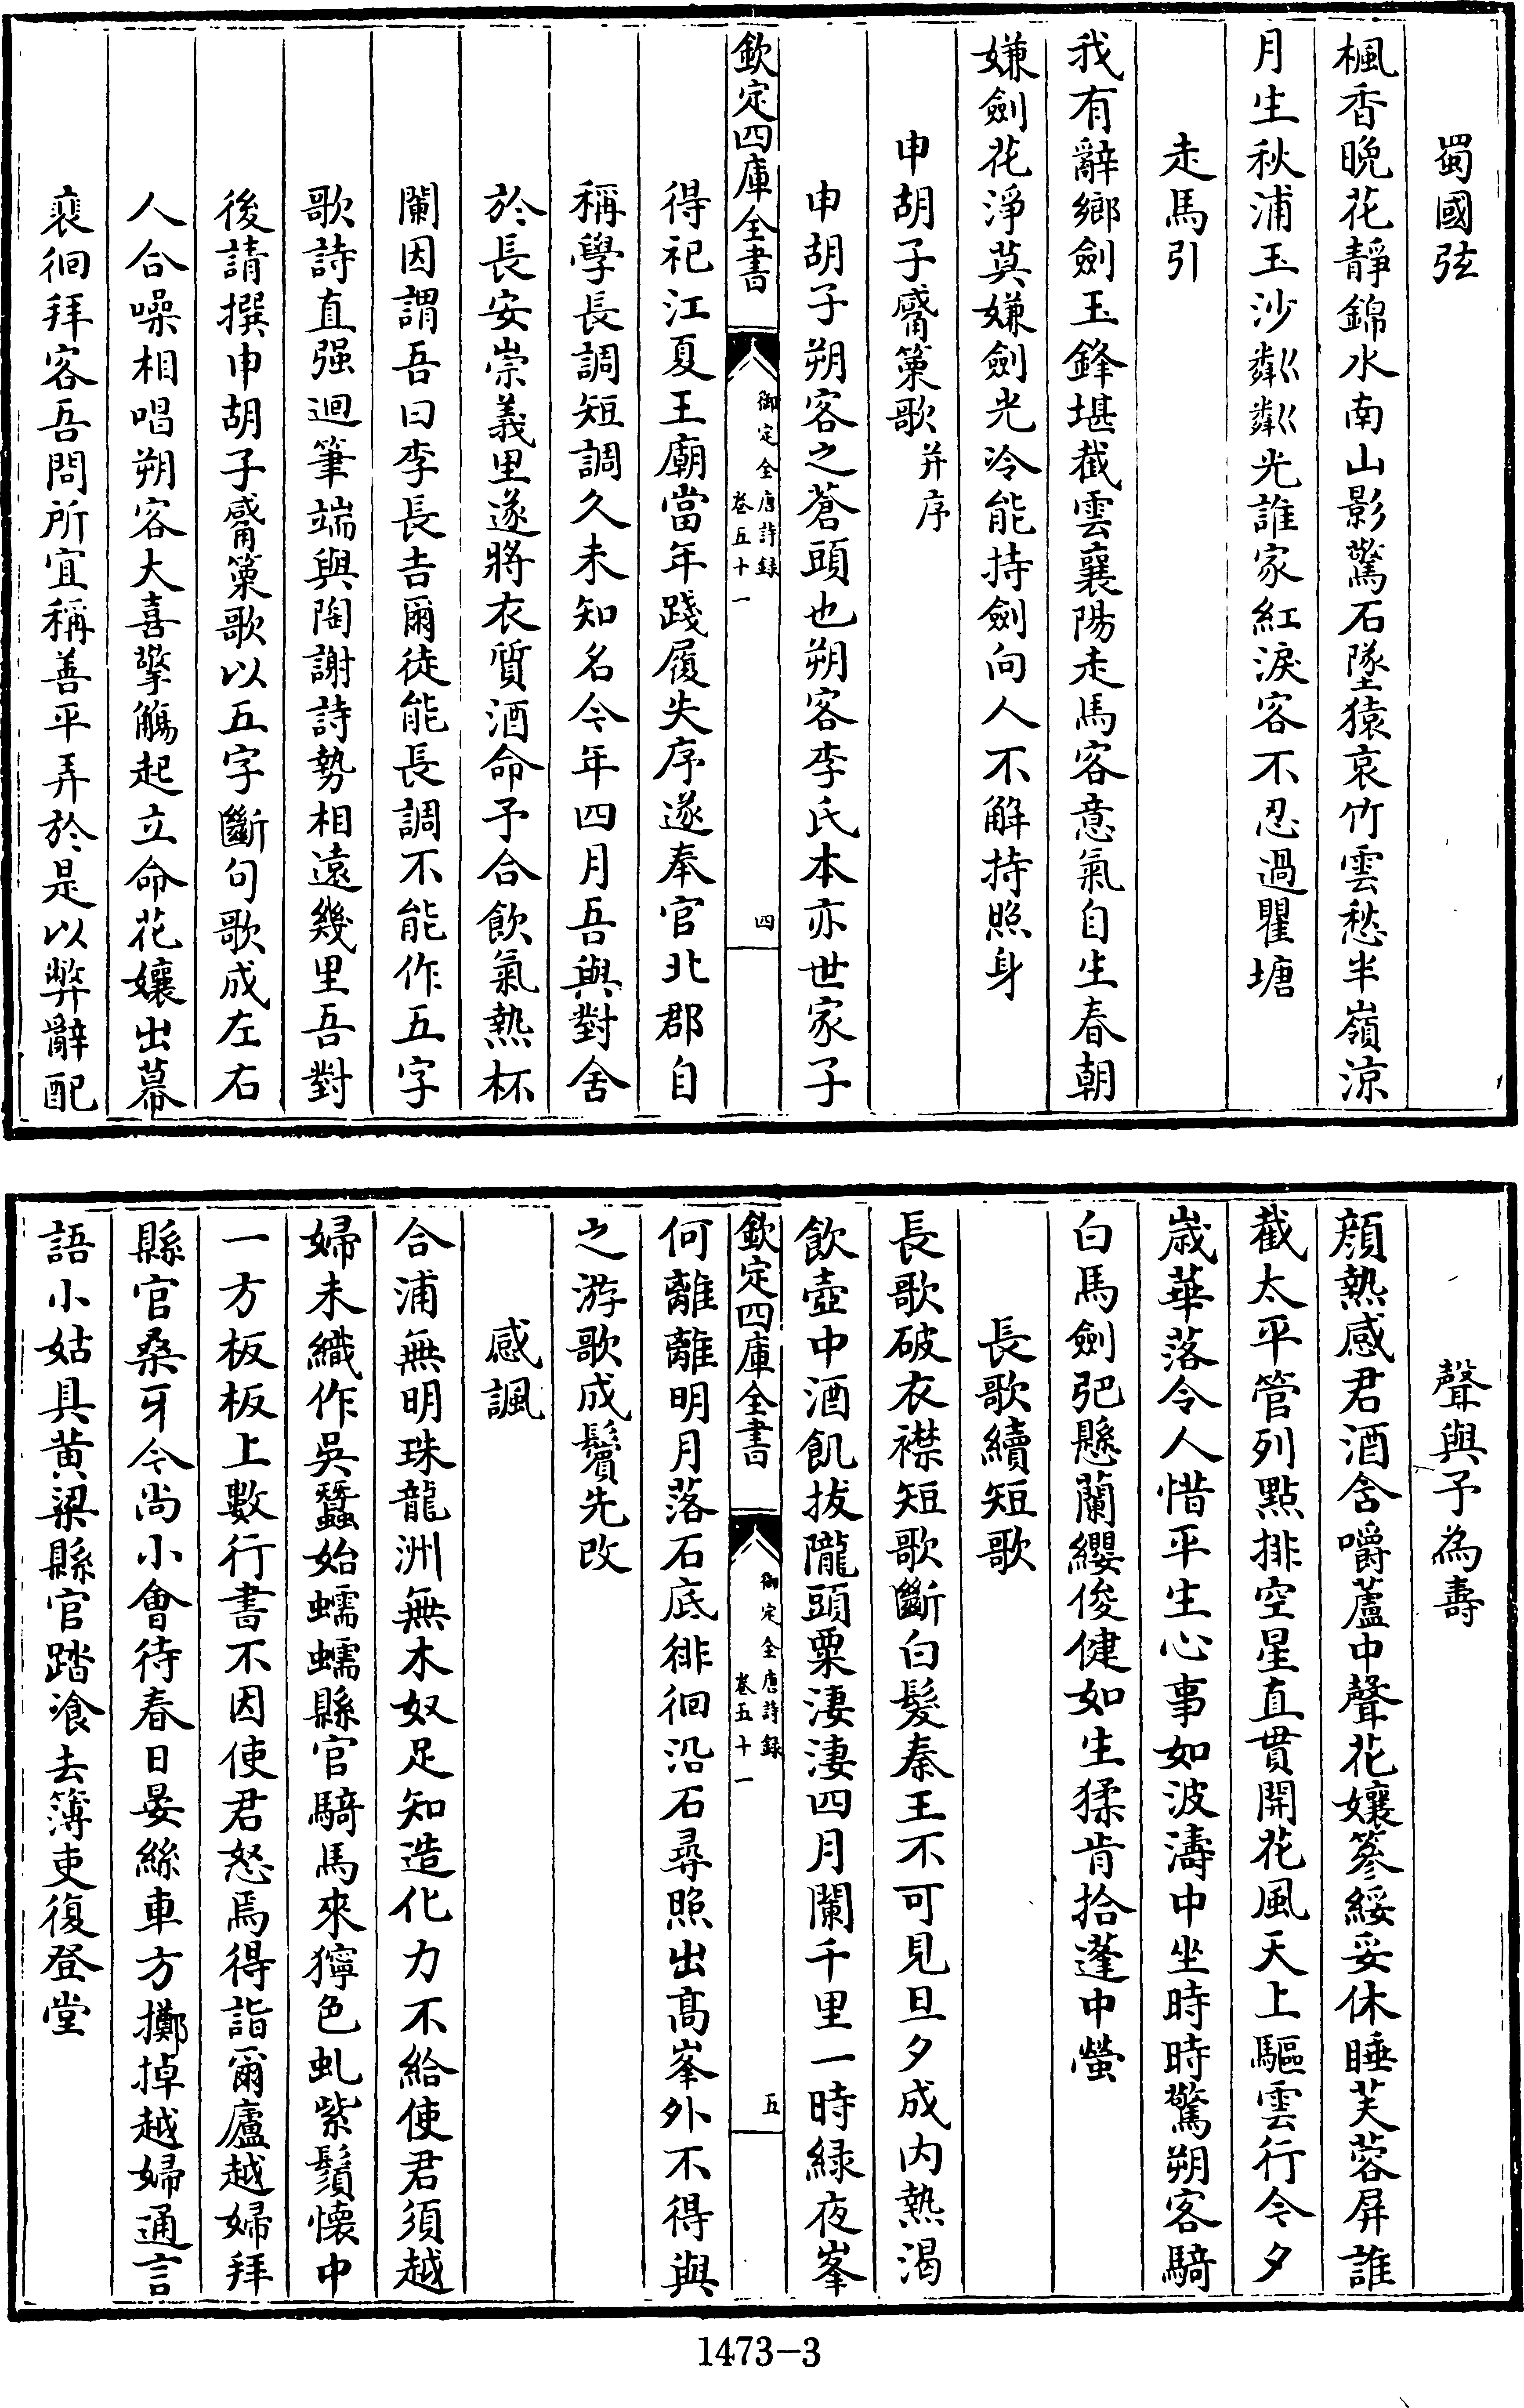 蜀國弦
楓香晚花靜錦水南山影驚石墜猿哀竹雲愁半嶺涼
月生秋浦玉沙粼粼光誰家紅淚客不忍過瞿塘
走馬引
我有辭鄉劍玉鋒堪截雲襄陽走馬客意氣自生春朝
嫌劍花淨莫嫌劍光冷能持劍向人不解持照身
申胡子觱篥歌并序
申胡子朔客之蒼頭也朔客李氏本亦世家子
欽定四庫全書
御定全唐詩録
卷五十一
四
得祀江夏王廟當年踐履失序遂奉官北郡自
稱學長調短調久未知名今年四月吾與對舍
於長安崇義里遂將衣質酒命予合飲氣熱杯
闌因謂吾曰李長吉爾徒能長調不能作五字
歌詩直强迴筆端與陶謝詩勢相遠幾里吾對
後請撰申胡子觱篥歌以五字斷句歌成左右
人合噪相唱朔客大喜擎觴起立命花孃出幕
裴徊拜客吾問所宜稱善平弄於是以弊辭配
聲與予為壽
顔熱感君酒含嚼蘆中聲花孃篸綏妥休睡芙蓉屏誰
截太平管列點排空星直貫開花風天上驅雲行今夕
歳華落令人惜平生心事如波濤中坐時時驚朔客騎
白馬劍弝懸蘭纓俊健如生猱肯拾蓬中螢
長歌續短歌
長歌破衣襟短歌斷白髮秦王不可見旦夕成内熱渴
飲壺中酒飢拔隴頭粟淒淒四月闌千里一時緑夜峯
欽定四庫全書
御定全唐詩録
卷五十一
五
何離離明月落石底徘徊沿石尋照出髙峯外不得與
之游歌成鬢先改
感諷
合浦無明珠龍洲無木奴足知造化力不給使君須越
婦未織作吳蠶始蠕蠕縣官騎馬來獰色虬紫鬚懷中
一方板板上數行書不因使君怒焉得詣爾廬越婦拜
縣官桑牙今尚小會待春日晏絲車方擲掉越婦通言
語小姑具黄粱縣官踏飡去簿吏復登堂
1473-3